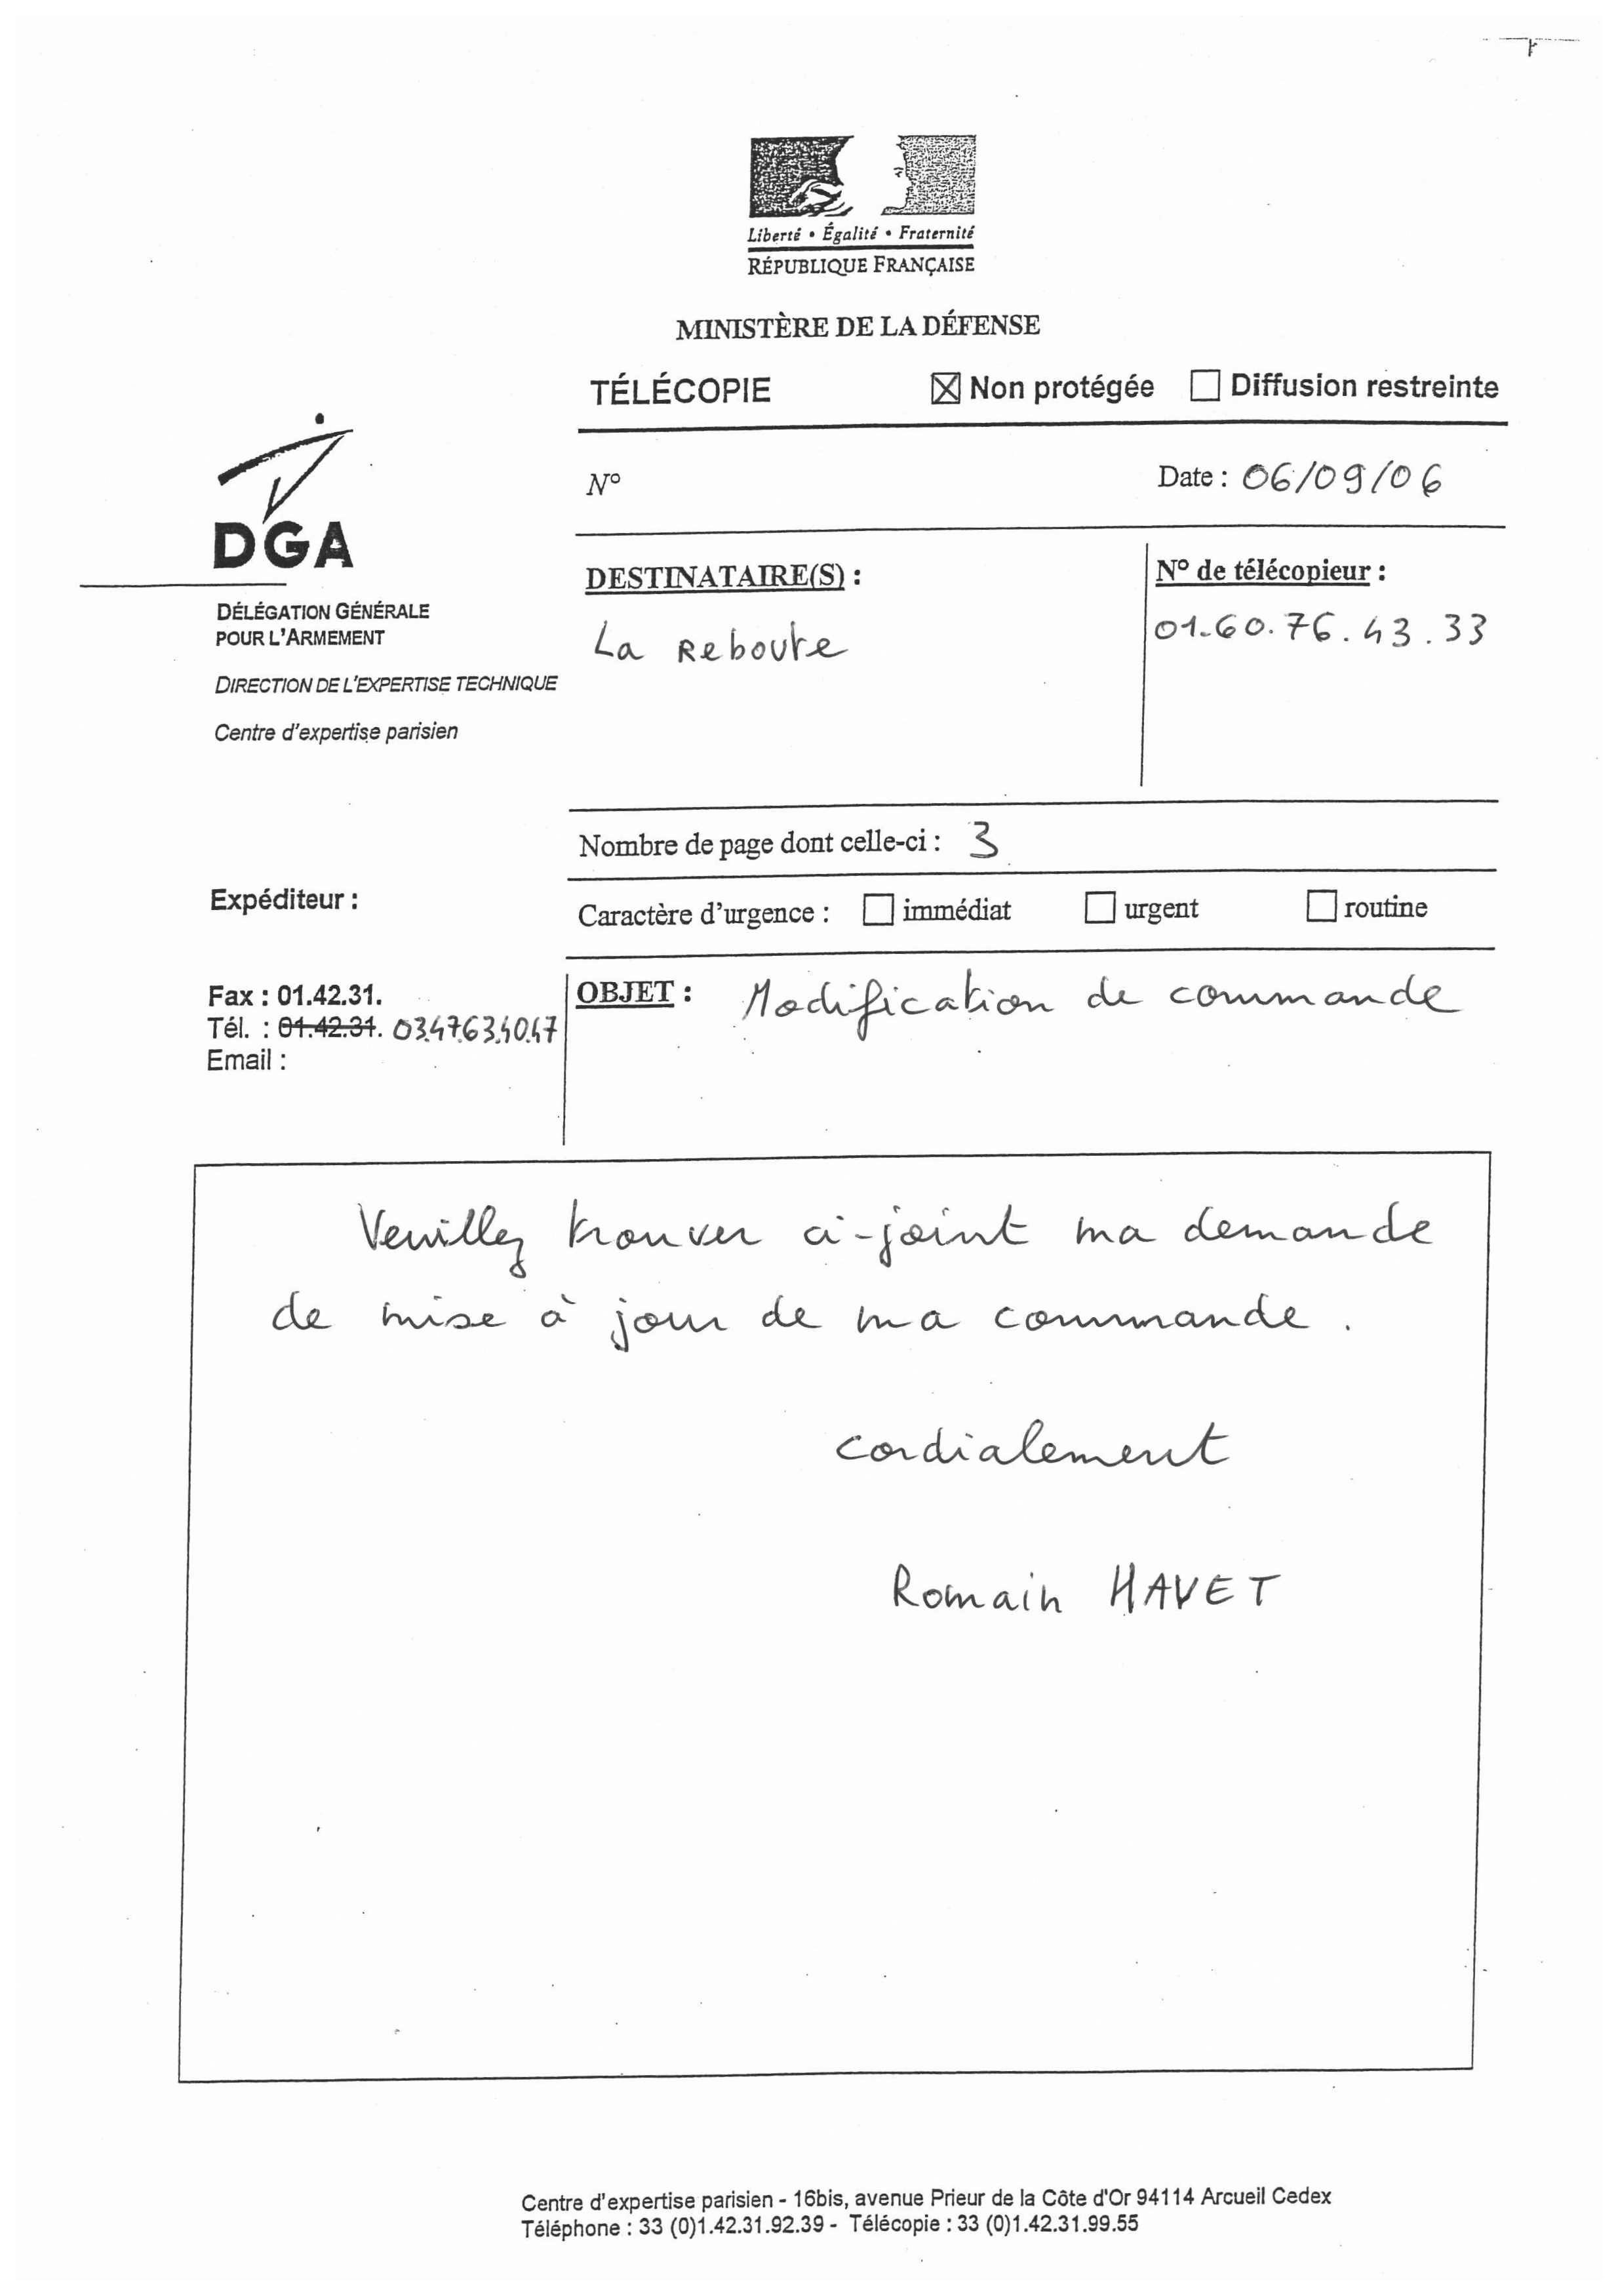 Liberté • Égalité • Fraternité
RÉPUBLIQUE FRANÇAISE
MINISTÈRE DE LA DÉFENSE
TÉLÉCOPIE ☒ Non protégée ☐ Diffusion restreinte
N° Date : 06/09/06
DGA
DÉLÉGATION GÉNÉRALE
POUR L'ARMEMENT
DIRECTION DE L'EXPERTISE TECHNIQUE
Centre d'expertise parisien
DESTINATAIRE(S) :
La Reboute
N° de télécopieur :
01.60.76.43.33
Nombre de page dont celle-ci : 3
Expéditeur :
Caractère d'urgence : ☐ immédiat ☐ urgent ☐ routine
Fax : 01.42.31.
Tél. : 01.42.31. 03.47.63.40.47
Email :
OBJET : Modification de commande
Veuillez trouver ci-joint ma demande
de mise à jour de ma commande.
cordialement
Romain HAVET
Centre d'expertise parisien - 16bis, avenue Prieur de la Côte d'Or 94114 Arcueil Cedex
Téléphone : 33 (0)1.42.31.92.39 - Télécopie : 33 (0)1.42.31.99.55